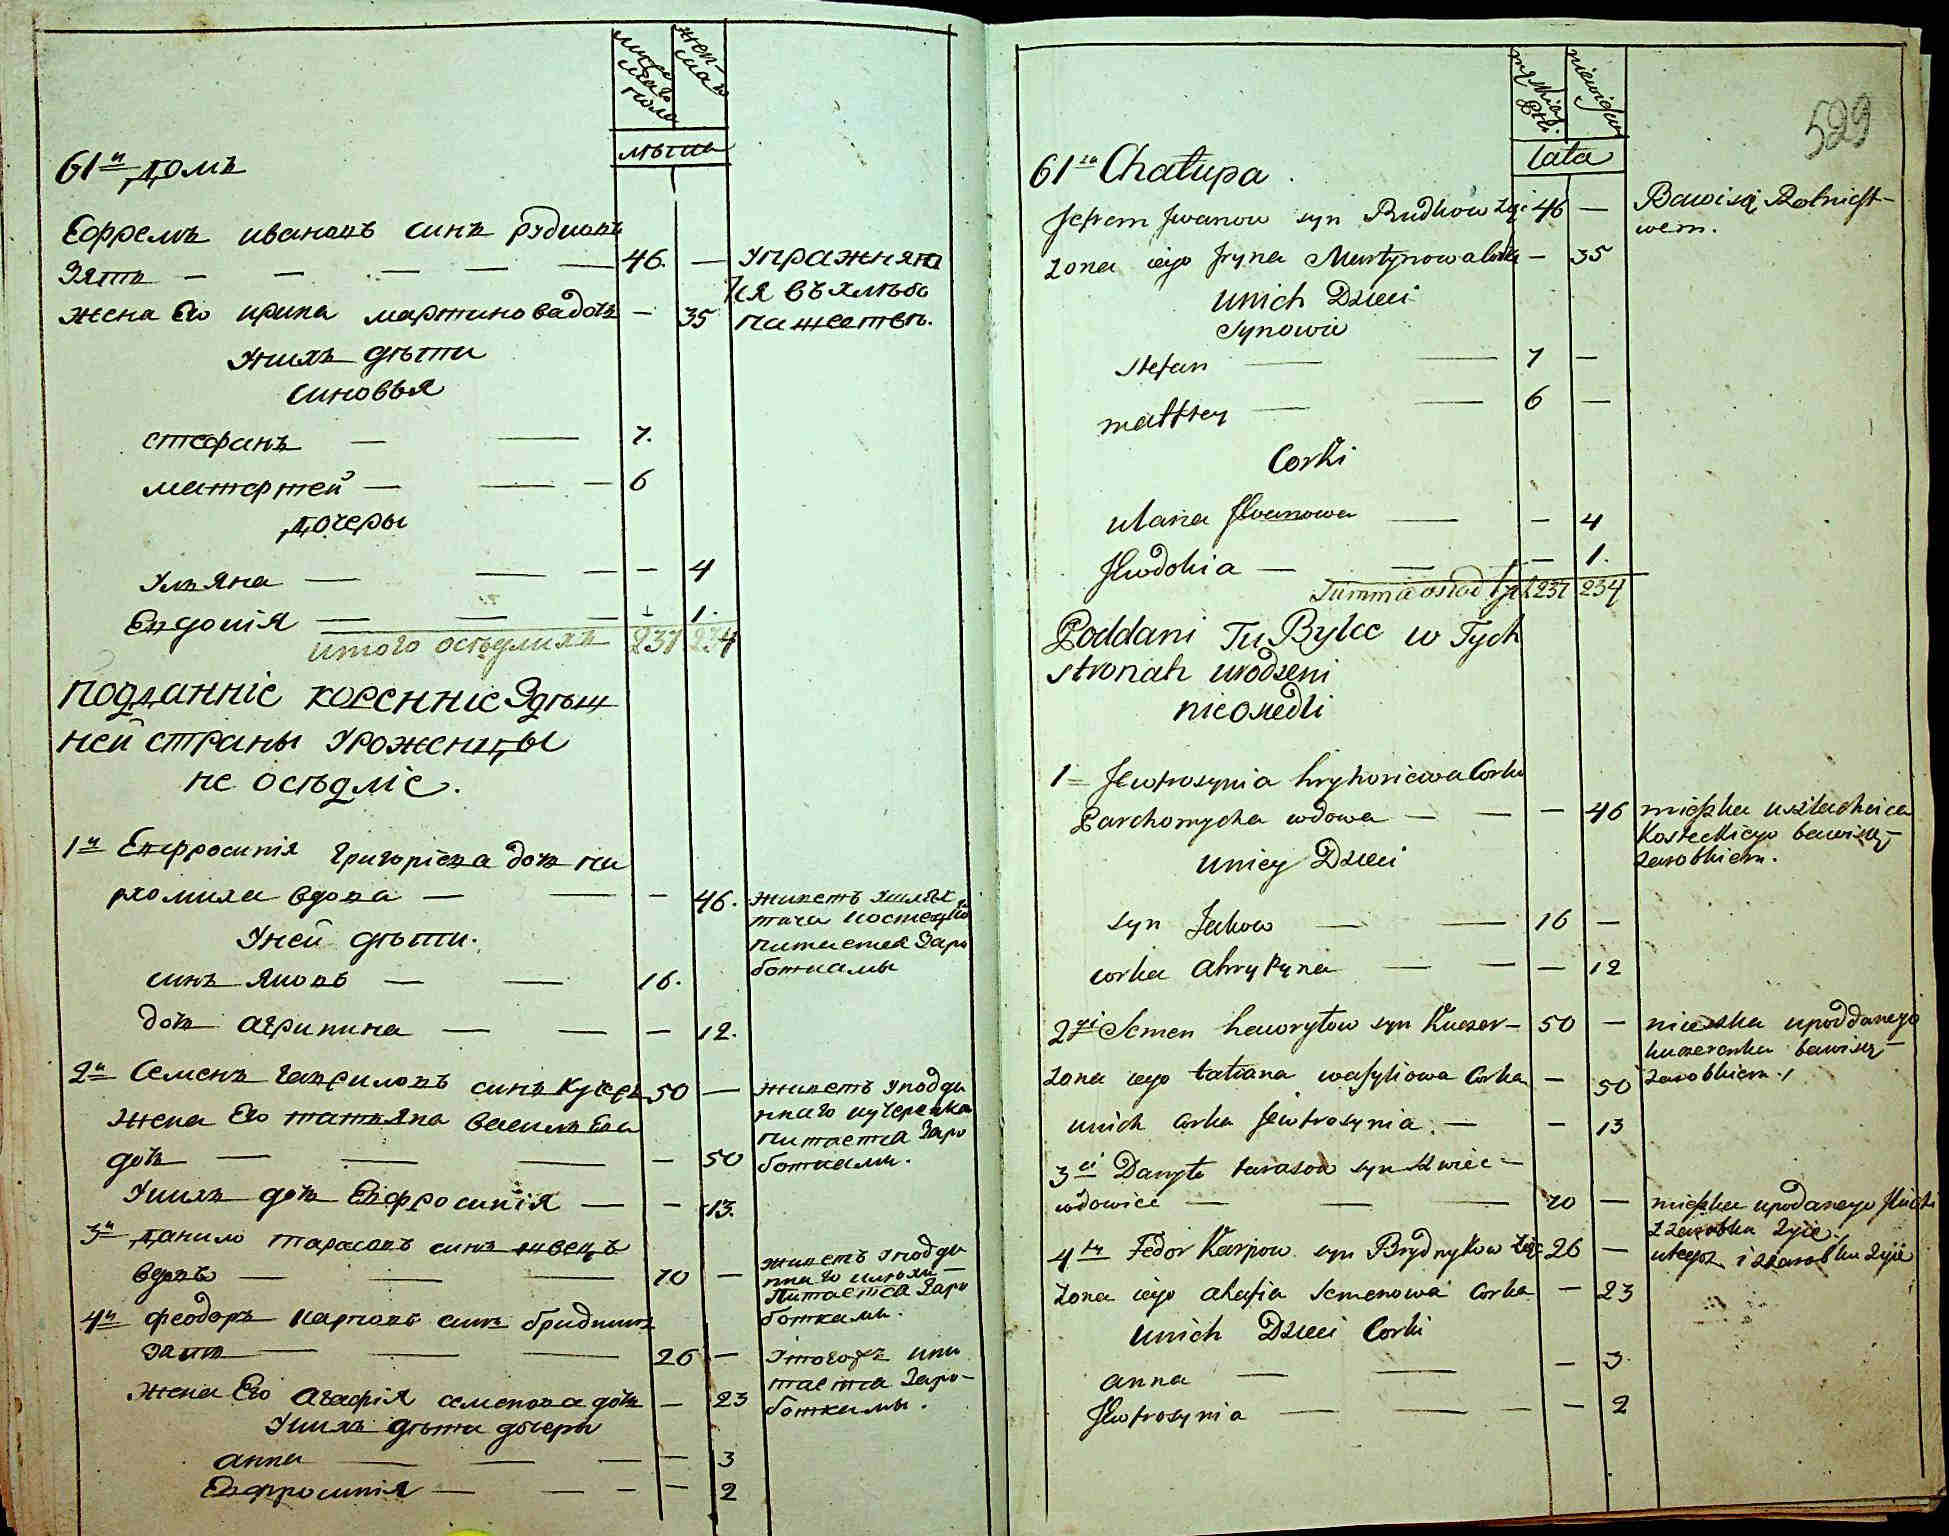 мужескаго пола
женска
лѣта
61й домъ
Ефремъ ивановъ синъ рудковъ
Зять — 46. — упражняю
жена Его ирина мартиновадочь — 35 тся въ хлѣбо
пашестве.
Унихъ дѣти
синовья
стефанъ — 7.
матфтей — 6
дочеры
Ульяна — 4
Евдокія — 1.
итого осѣдлихъ 237 234
подданніе коренніе Здѣш
ней страны Уроженцы
не осѣдліе.
1й Евфросинія григоріева дочь па
рхомиха вдова — — 46. живетъ Ушлях
тича костецкаго
питается Заро
боткамы
Уней дѣти.
синъ яковъ — 16.
дочь агрипина — — 12.
2й Семенъ гавриловъ синъ кучеръ 50 — живетъ Уподда
ннаго кучеренка
питается Заро
боткамы.
жена Его татьяна василѣва
дочь — — 50
Унихъ дочь Евфросинія — — 13.
3й данило тарасовъ синъ швецъ
вдовъ — 70 — живетъ Уподда
ннаго
Питается Заро
боткамы.
4й феодоръ карповъ синъ бридник
зять — 26 — Утогожъ и пи
тается Заро-
боткамы.
жена Его агафія семенова дочь — 23
Унихъ дѣти дочеры
анна — — 3
Евфросинія — — 2
męskiej Płci
niewiesciey
lata
529
61sza Chałupa
Jefrem Jwanow syn Rudkow Zięć 46 — Bawisię Rolnicst-
wem.
żona iego Jryna Martynowa Corka — 35
unich Dzieci
Synowie
Stefan — 7 —
mattfey — 6 —
Corki
ulana Jwanowa — — 4
Jewdokia — — 1.
Summa osiadłych 237 234
Poddani Tu Bylce w Tych
stronah urodzeni
nieosiedli
1= Jewfrosynia hryhoriewa Corka
Parchomycha wdowa — — 46 mieszka uszlachcica
Kosteckiego bawisię
zarobkiem.
uniey Dzieci
syn Jakow — 16 —
corka ahrypyna — — 12
2gi Semen hawryłow syn Kuczer — 50 — mieszka upoddanego
kuczerenka bawisię
zarobkiem.
żona iego tatiana wasyliowa Corka — 50
unich Corka Jewfrosynia — — 13
3ci Danyło tarasow syn szwiec —
wdowiec — 70 — mieszka upodanego
z zarobku żyie.
4ty Fedor Karpow syn Brydnykow Zięć 26 — utegoż i zzarobku żyie
żona iego ahafia Semenowa Corka — 23
unich Dzieci Corki
anna — — 3.
Jewfrosynia — — 2